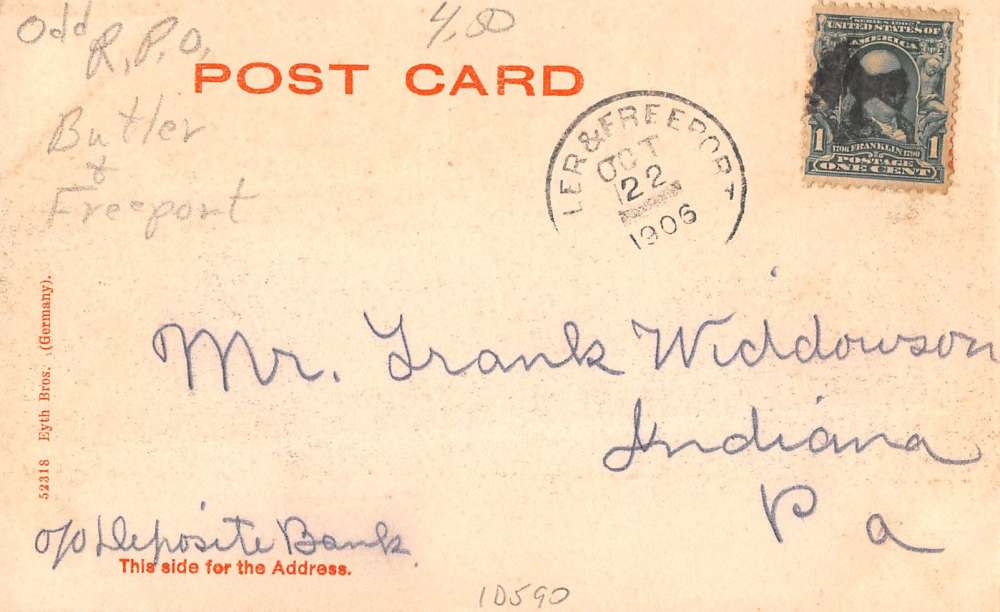 Odd
R.P.O.
4.50
POST CARD
Butler
&
Freeport
LER & FREEPORT
OCT
22
1906
SERIES 1902
UNITED STATES OF
AMERICA
1 1706 FRANKLIN 1790 1
POSTAGE
ONE CENT
52318 Eyth Bros. (Germany).
Mr. Frank Widdowson
Indiana
Pa
c/o Deposite Bank
This side for the Address.
10590